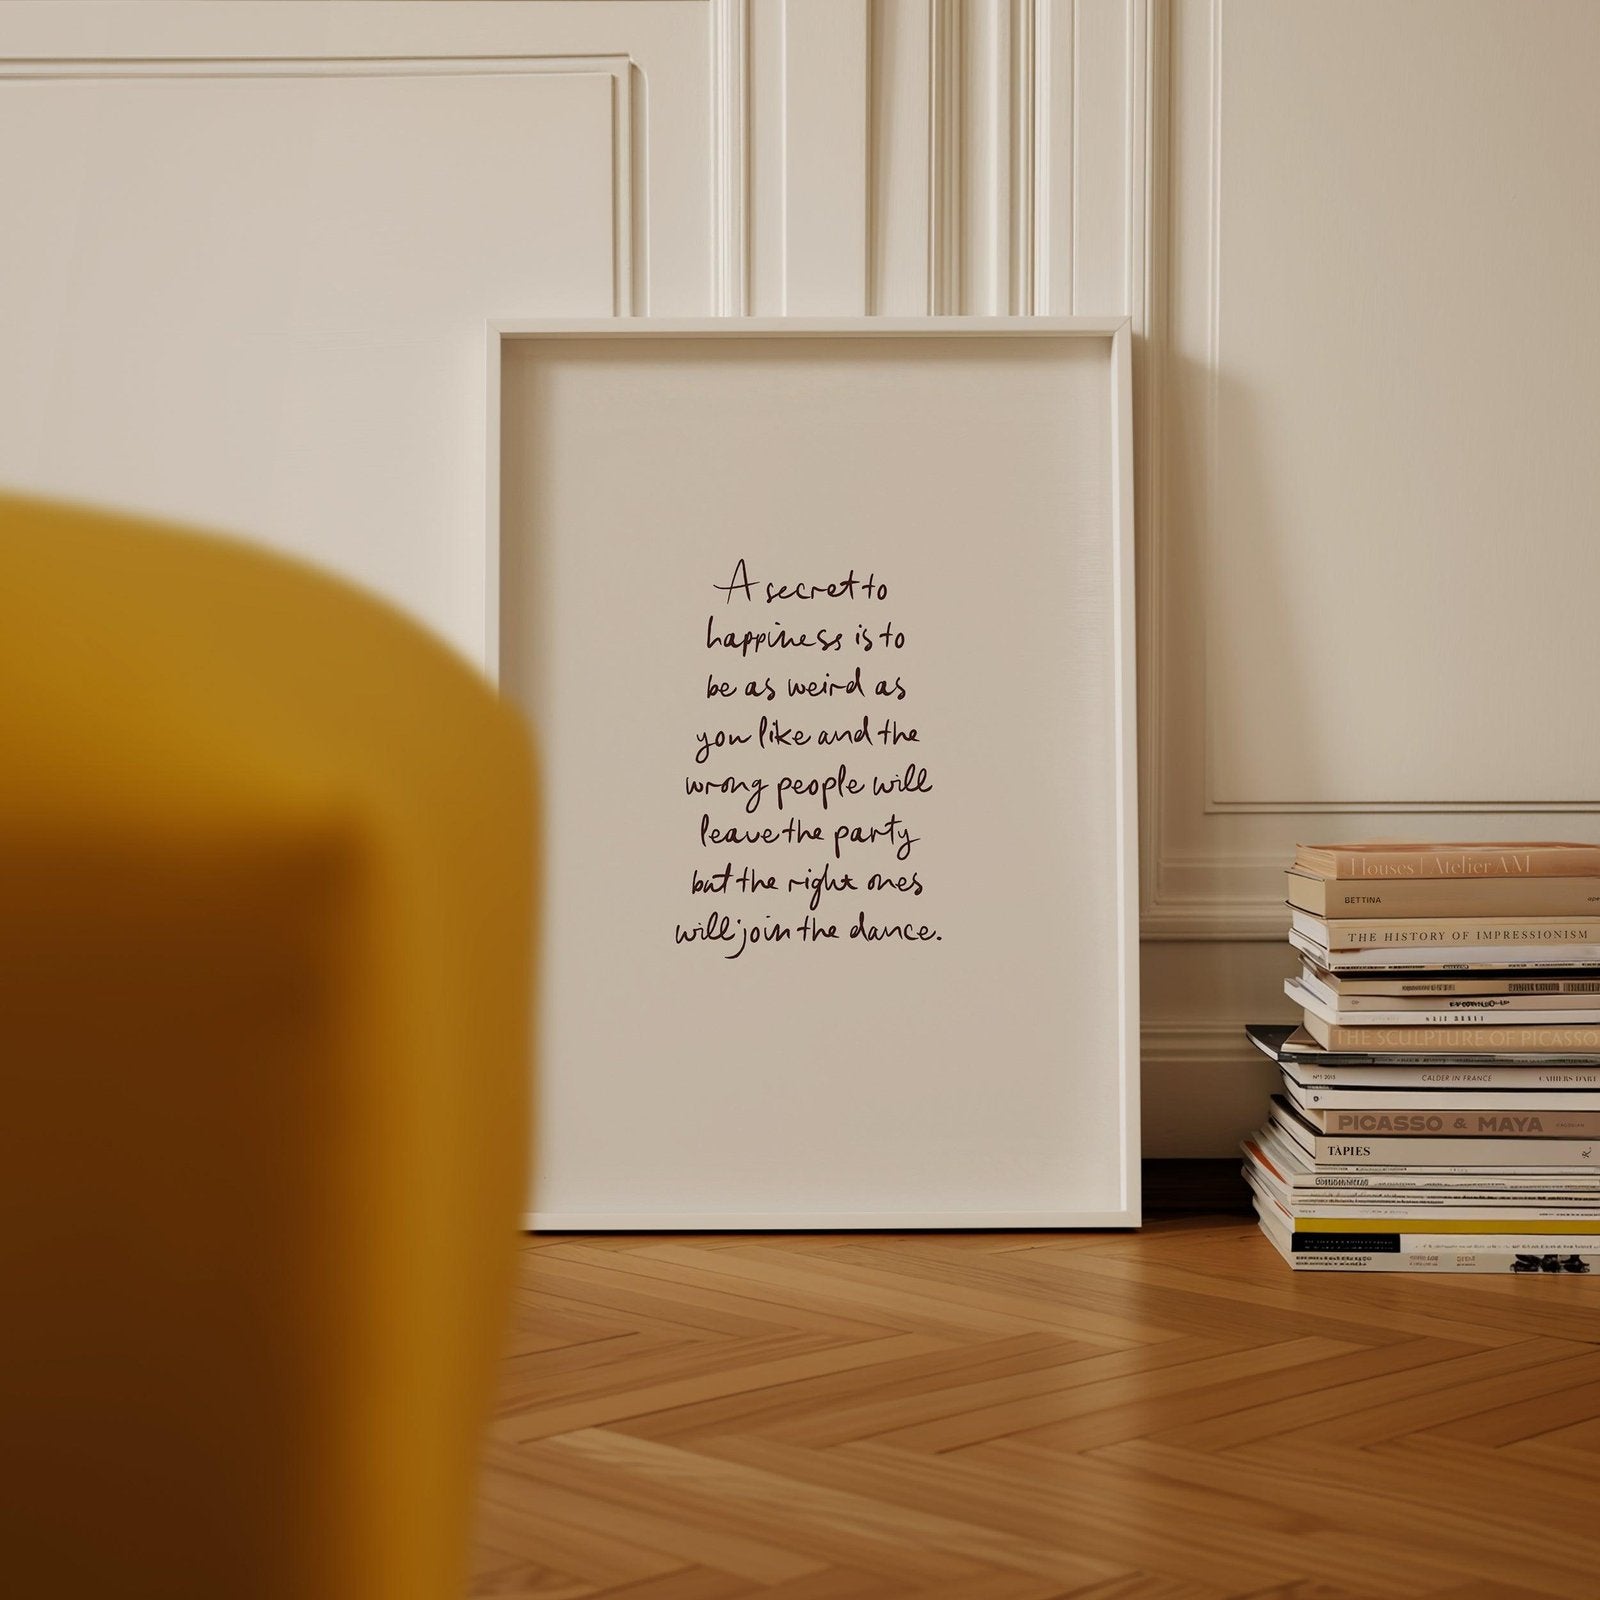 A secret to
happiness is to
be as weird as
you like and the
wrong people will
leave the party
but the right ones
will join the dance.
Houses | Atelier AM
BETTINA
THE HISTORY OF IMPRESSIONISM
THE SCULPTURE OF PICASSO
Nº1 2015 CALDER IN FRANCE CAHIERS D'ART
PICASSO & MAYA GAGOSIAN
TÀPIES